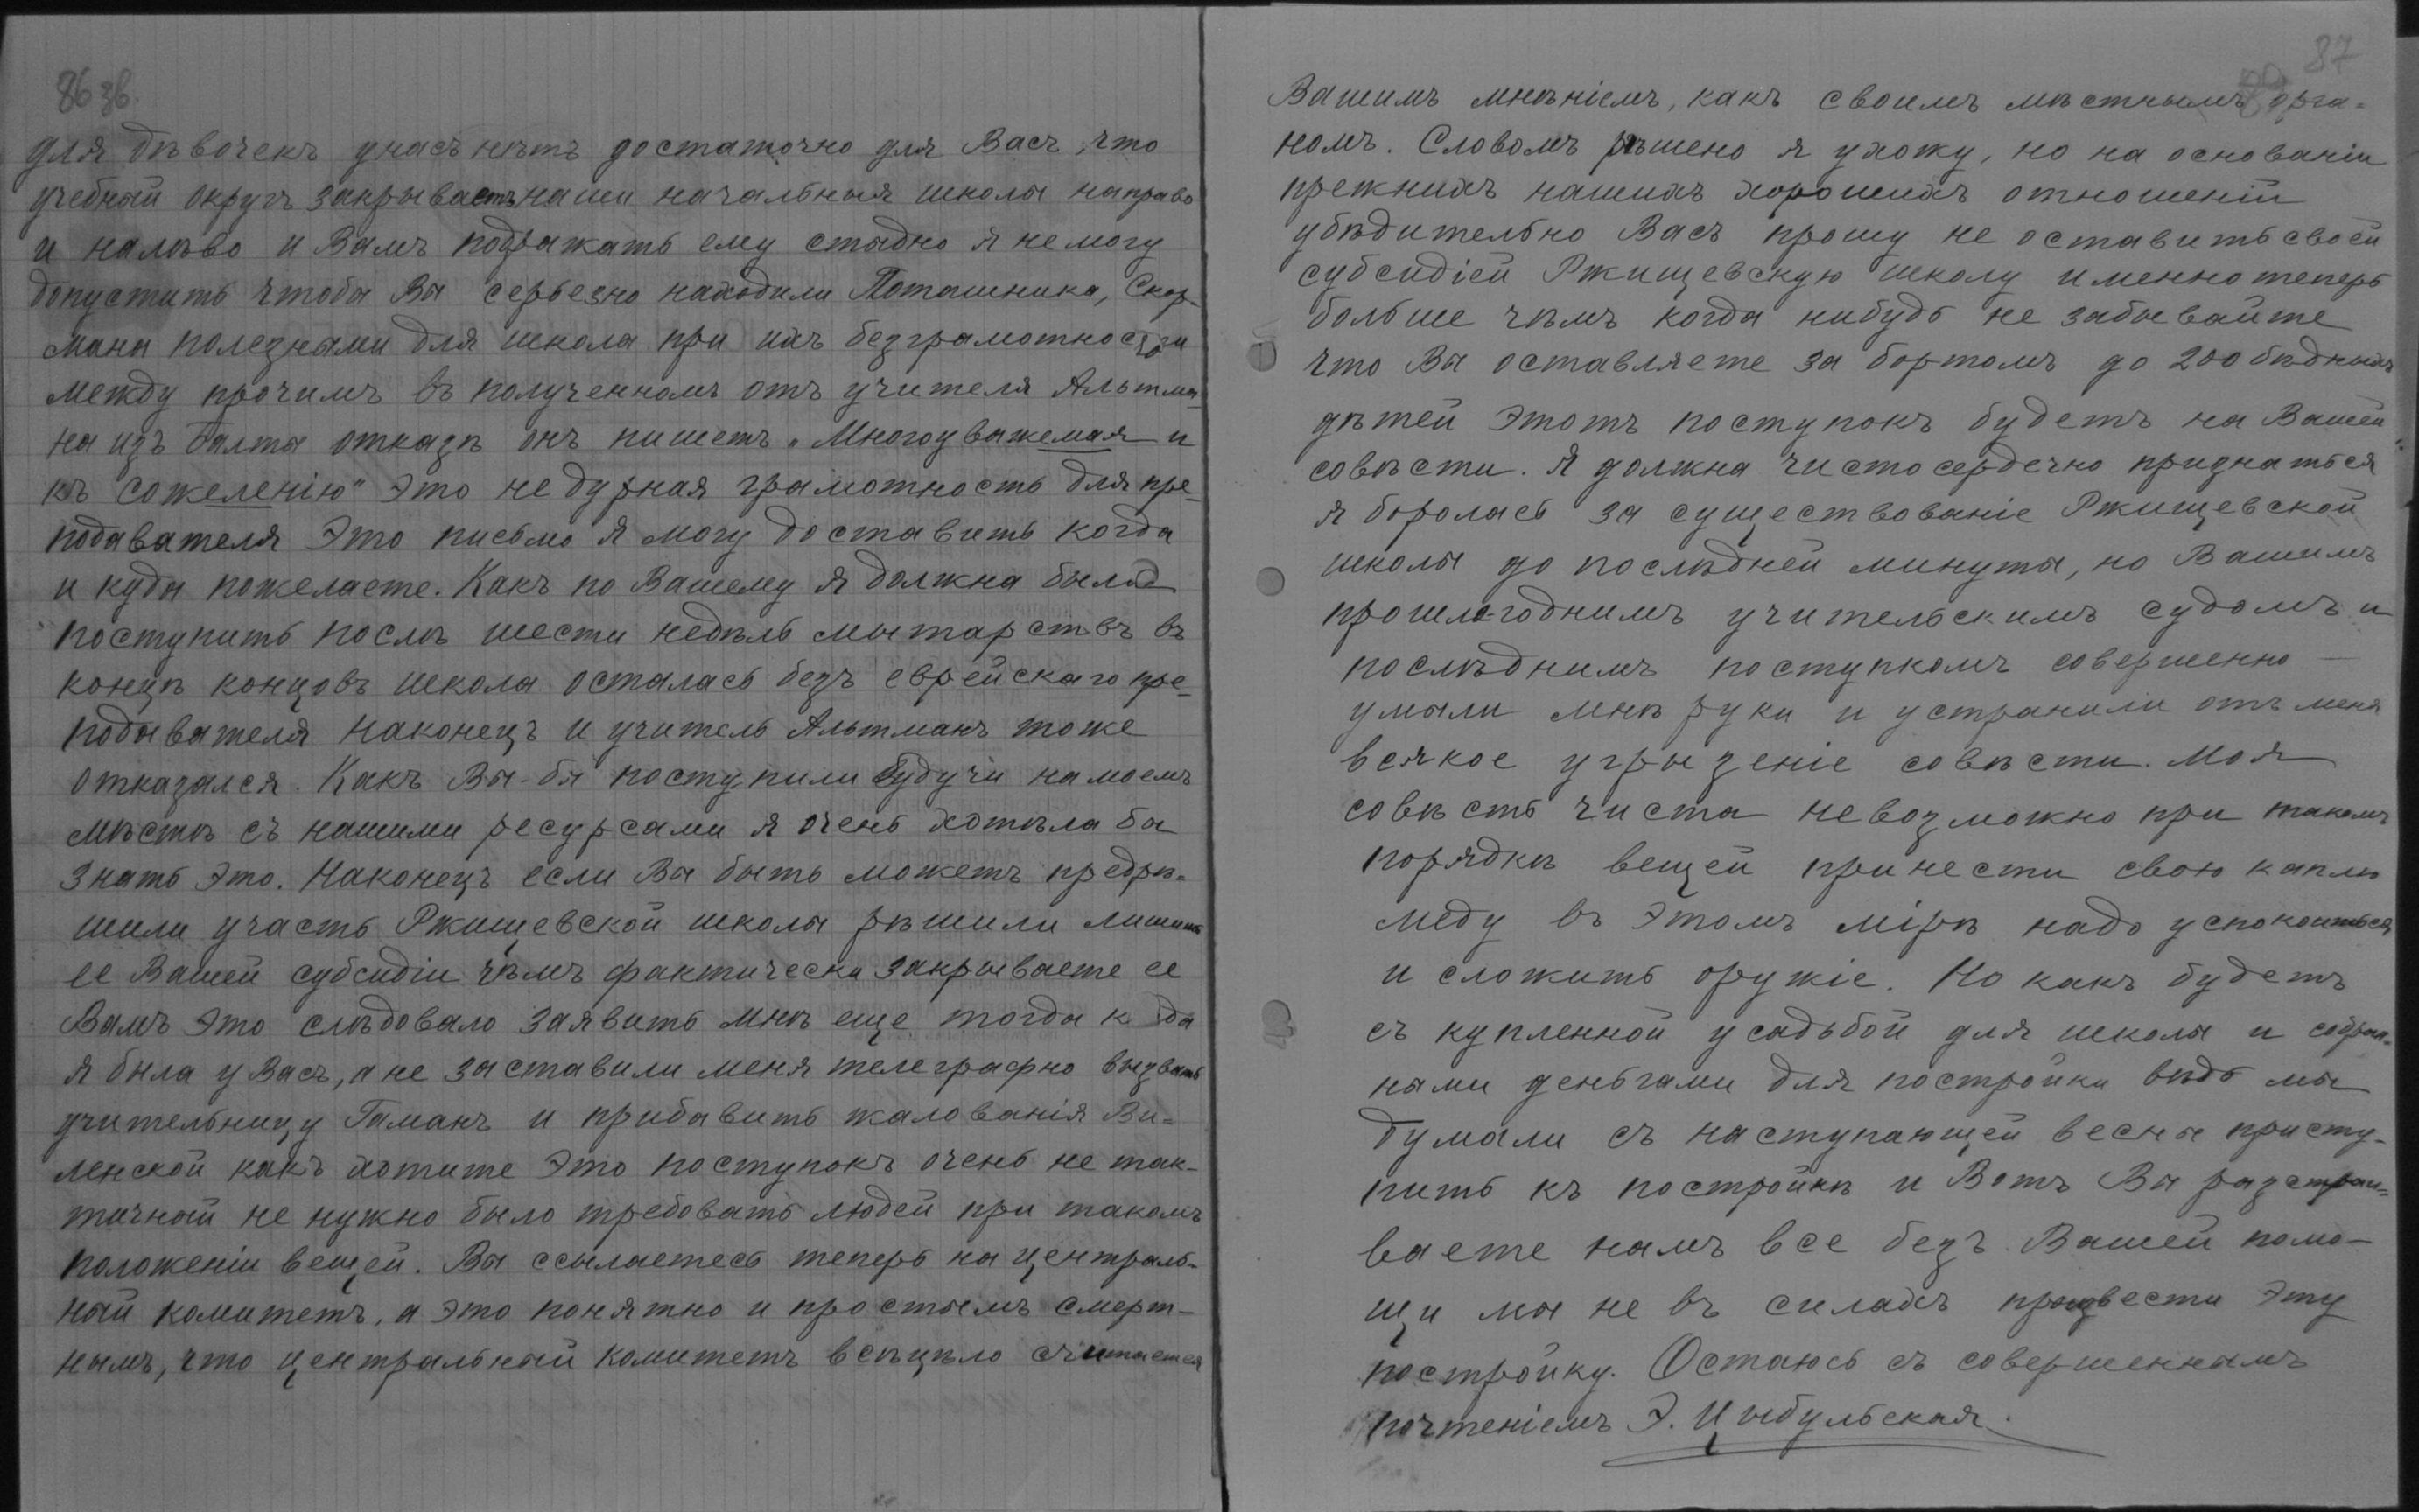 86 зв.
для дѣвочекъ унасъ нѣтъ достаточно для Васъ, что
учебный округъ закрываетъ наши начальныя школы направо
и налѣво и Вамъ подражать ему стыдно я немогу
допустить чтобы Вы серьезно находили Поташника, Скор-
мана полезными для школы при ихъ безграмотности
между прочимъ въ полученномъ отъ учителя Альтма-
на изъ Балты отказѣ онъ пишетъ „Многоуважемая и
къ сожеленію" Это не дурная грамотность для пре-
подавателя Это письмо я могу доставить когда
и куда пожелаете. Какъ по Вашему я должна была
поступить послѣ шести недѣль мытарствъ въ
концѣ концовъ школа осталась безъ еврейскаго пре-
подавателя наконецъ и учитель Альтманъ тоже
отказался. Какъ Вы-бы поступили будучи на моемъ
мѣстѣ съ нашими ресурсами я очень хотѣла бы
знать это. Наконецъ если Вы быть можетъ предрѣ-
шили участь Ржищевской школы рѣшили лишить
ее Вашей субсидіи чѣмъ фактически закрываете ее
Вамъ это слѣдовало заявить мнѣ еще тогда к да
я была у Васъ, а не заставили меня телеграфно вызвать
учительницу Гаманъ и прибавить жалованія Ви-
ленской какъ хотите это поступокъ очень не так-
тичный не нужно было требовать людей при такомъ
положеніи вещей. Вы ссылаетесь теперь на централь-
ный комитетъ, а это понятно и простымъ смерт-
нымъ, что центральный комитетъ всецѣло считается
87
Вашимъ мнѣніемъ, какъ своимъ мѣстнымъ орга-
номъ. Словомъ рѣшено я ухожу, но на основаніи
прежнихъ нашихъ хорошихъ отношеній
убѣдительно Васъ прошу не оставить своей
субсидіей Ржищевскую школу именно теперь
больше чѣмъ когда нибудь не забывайте
что Вы оставляете за бортомъ до 200 бѣдныхъ
дѣтей этотъ поступокъ будетъ на Вашей
совѣсти. Я должна чистосердечно признаться
я боролась за существованіе Ржищевской
школы до послѣдней минуты, но Вашимъ
прошлогоднимъ учительскимъ судомъ и
послѣднимъ поступкомъ совершенно
умыли мнѣ руки и устранили отъ меня
всякое угрызеніе совѣсти. Моя
совѣсть чиста невозможно при такомъ
порядкѣ вещей принести свою каплю
меду въ этомъ мірѣ надо успокоиться
и сложить оружіе. Но какъ будетъ
съ купленной усадьбой для школы и собран-
ными деньгами для постройки вѣдь мы
думали съ наступающей весны присту-
пить къ постройкѣ и Вотъ Вы разстраи-
ваете намъ все безъ Вашей помо-
щи мы не въ силахъ произвести эту
постройку. Остаюсь съ совершеннымъ
почтеніемъ Э. Цыбульская.